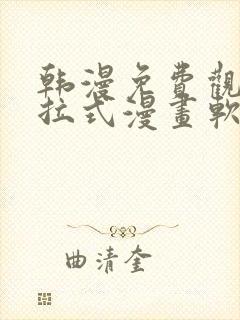 韩漫免費觀
拉式漫畫軟
曲清奎